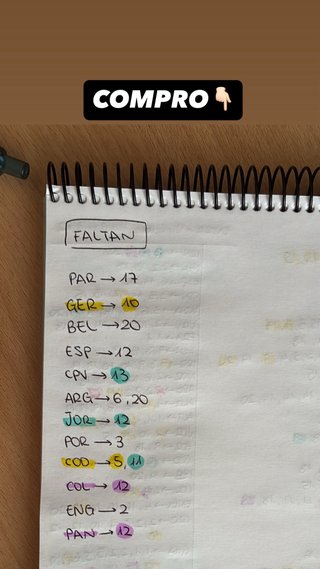 COMPRO👇🏻
FALTAN
PAR → 17
GER → 10
BEL → 20
ESP → 12
CPV → 13
ARG → 6, 20
JOR → 12
POR → 3
COD → 5, 11
COL → 12
ENG → 2
PAN → 12